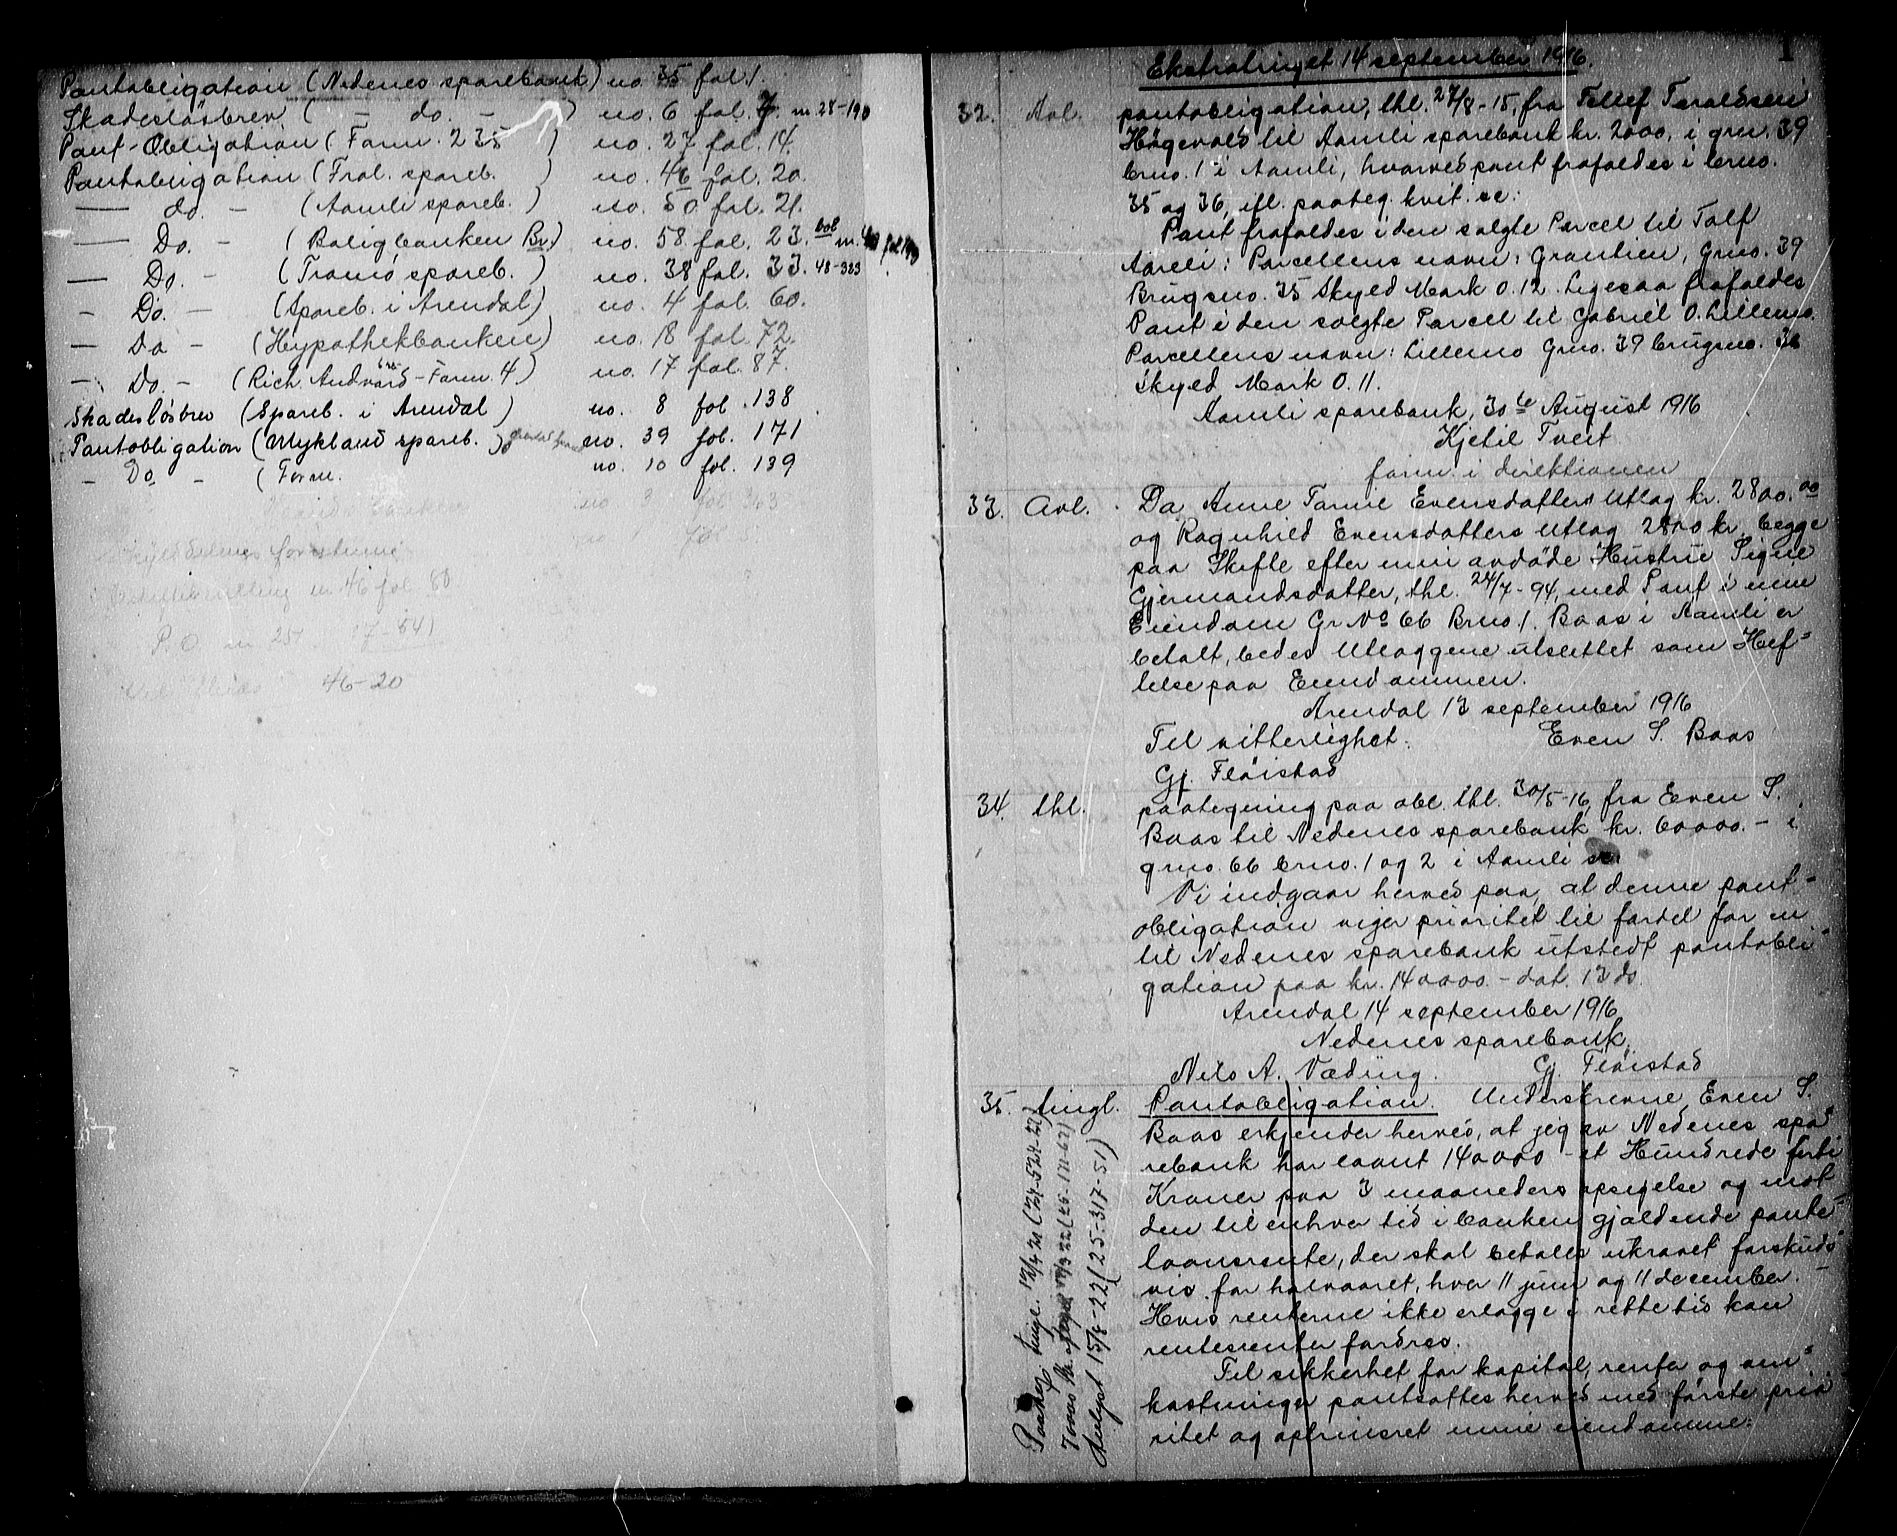 Pantobligation (Nedenes sparebank) no 35 fol 1.
Skadesløsbrev ( — do. — ) no. 6 fol. 7. m 28-190
Pant-Obligation (Form. 235 ) no. 27 fol. 14.
Pantobligation (Frol. spareb. ) no. 46 fol. 20.
— do. - (Aamli spareb. ) no. 50 fol. 21.
— Do. - (Boligbanken Br.) no. 58 fol. 23.
— Do. - (Tromø spareb. ) no. 38 fol. 33. 48-383
- Do. - (Spareb. i Arendal) no. 4 fol. 60.
- Do - (Hypothekbanken) no. 18 fol. 72.
- Do. - (Rich. Andvord - Form. 4.) no. 17 fol. 87.
Skadesløsbrev (Spareb. i Arendal ) no. 8 fol. 138
Pantobligation (Mykland spareb. ) no. 39 fol. 171
- Do - (Form. no. 10 fol. 139
no 3 fol 363
no 1 fol 5.
m 46 fol 80
P.O. m 25 17-541
46-20
1
Ekstratinget 14 september 1916.
32. Avl. pantobligation, thl. 27/8-15, fra Tellef Taraldsen
Høgevold til Aamli sparebank kr. 2000, i grn. 39
brno. 1 i Aamli, hvorved pant frafaldes i brno.
35 og 36, ifl. paateg. kvit. se:
Pant frafaldes i den solgte Parcel til Tolf
Aareli: Parcellens navn: Grantien, Grno. 39
Brugsno. 35 Skyld Mark 0.12. Ligesaa frafaldes
Pant i den solgte Parcel til Gabriel O. Lillemo.
Parcellens navn: Lillemo Grno. 39 brugsno. 36
Skyld Mark 0.11.
Aamli sparebank, 30te August 1916
Kjetil Tveit
form. i direktionen
33. Avl. Da Anne Tomie Evensdatters Utlag kr. 2800.00
og Ragnhild Evensdatters utlag 2800 kr begge
paa Skifte efter min avdøde Hustru Signe
Gjermundsdatter, thl. 24/7-94, med Pant i min
Eiendom Gr No 66 Brno 1. Boas i Aamli er
betalt, bedes Utlæggene utslettet som Hef-
telse paa Eiendommen.
Arendal 13 september 1916
Til vitterlighet: Even S. Boas
Gj. Fløistad
34. thl. paategning paa obl. thl. 30/5-16, fra Even S.
Boas til Nedenes sparebank kr. 60000.- i
grno. 66 brno. 1 og 2 i Aamli se:
Vi indgaar herved paa, at denne pant-
obligation viger prioritet til fordel for en
til Nedenes sparebank utstedt pantobli-
gation paa kr. 140000.- dat. 13 ds.
Arendal 14 september 1916
Nedenes sparebank.
Nils A. Væding. Gj. Fløistad
35. tingl. Pantobligation. Underskrevne Even S.
Boas erkjender herved, at jeg av Nedenes spa-
rebank har laant 140000 - et Hundrede forti
Kroner paa 3 maaneders opsigelse og mot
den til enhver tid i banken gjældende pante-
laansrente, der skal betales ukrævet forskuds-
vis for halvaaret, hver 11 juni og 11 december. -
Hvis renterne ikke erlægge i rette tid kan
rentesrenter fordres.
Til sikkerhet for kapital, renter og om-
kostninger pantsættes herved med første prio-
ritet og oprineret mine eiendomme:
Paateg. tingl. 12/4 21 (24-524-22)
(25-171-62)
Avlyst 15/8-22 (25-317-51)